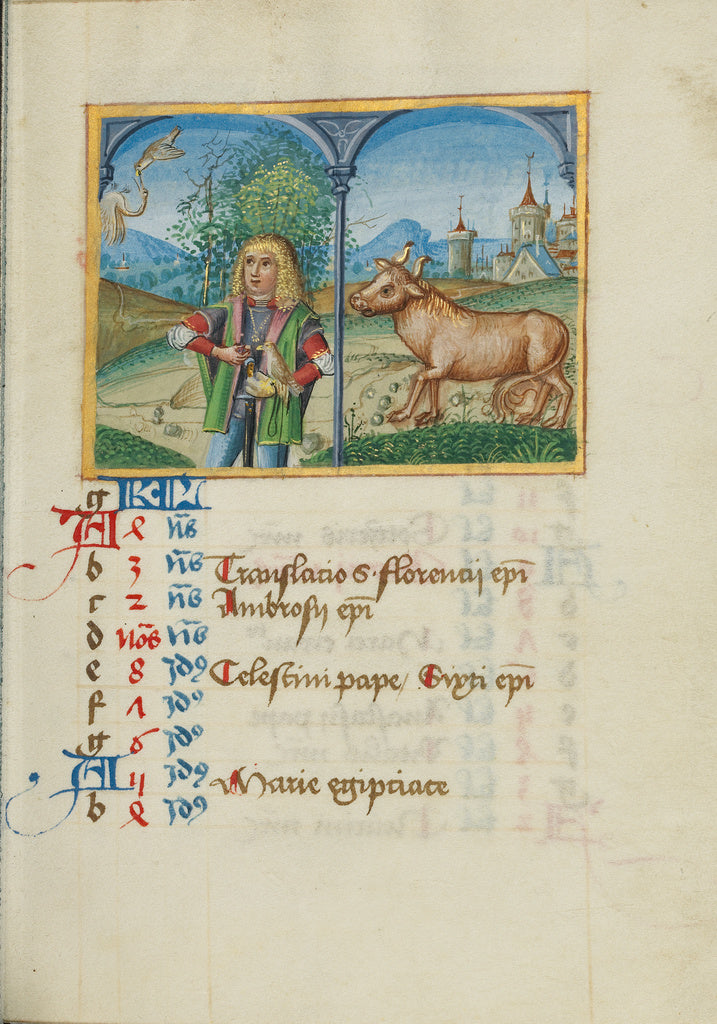 g KL
A e nō
b 3 nō Translatio S. florencij ep̄i
c 2 nō Ambrosij ep̄i
d nōs nō
e 8 jdꝰ Celestini pape / Sixti ep̄i
f 7 jdꝰ
g 6 jdꝰ
A 4 jdꝰ Marie egipciace
b e jdꝰ